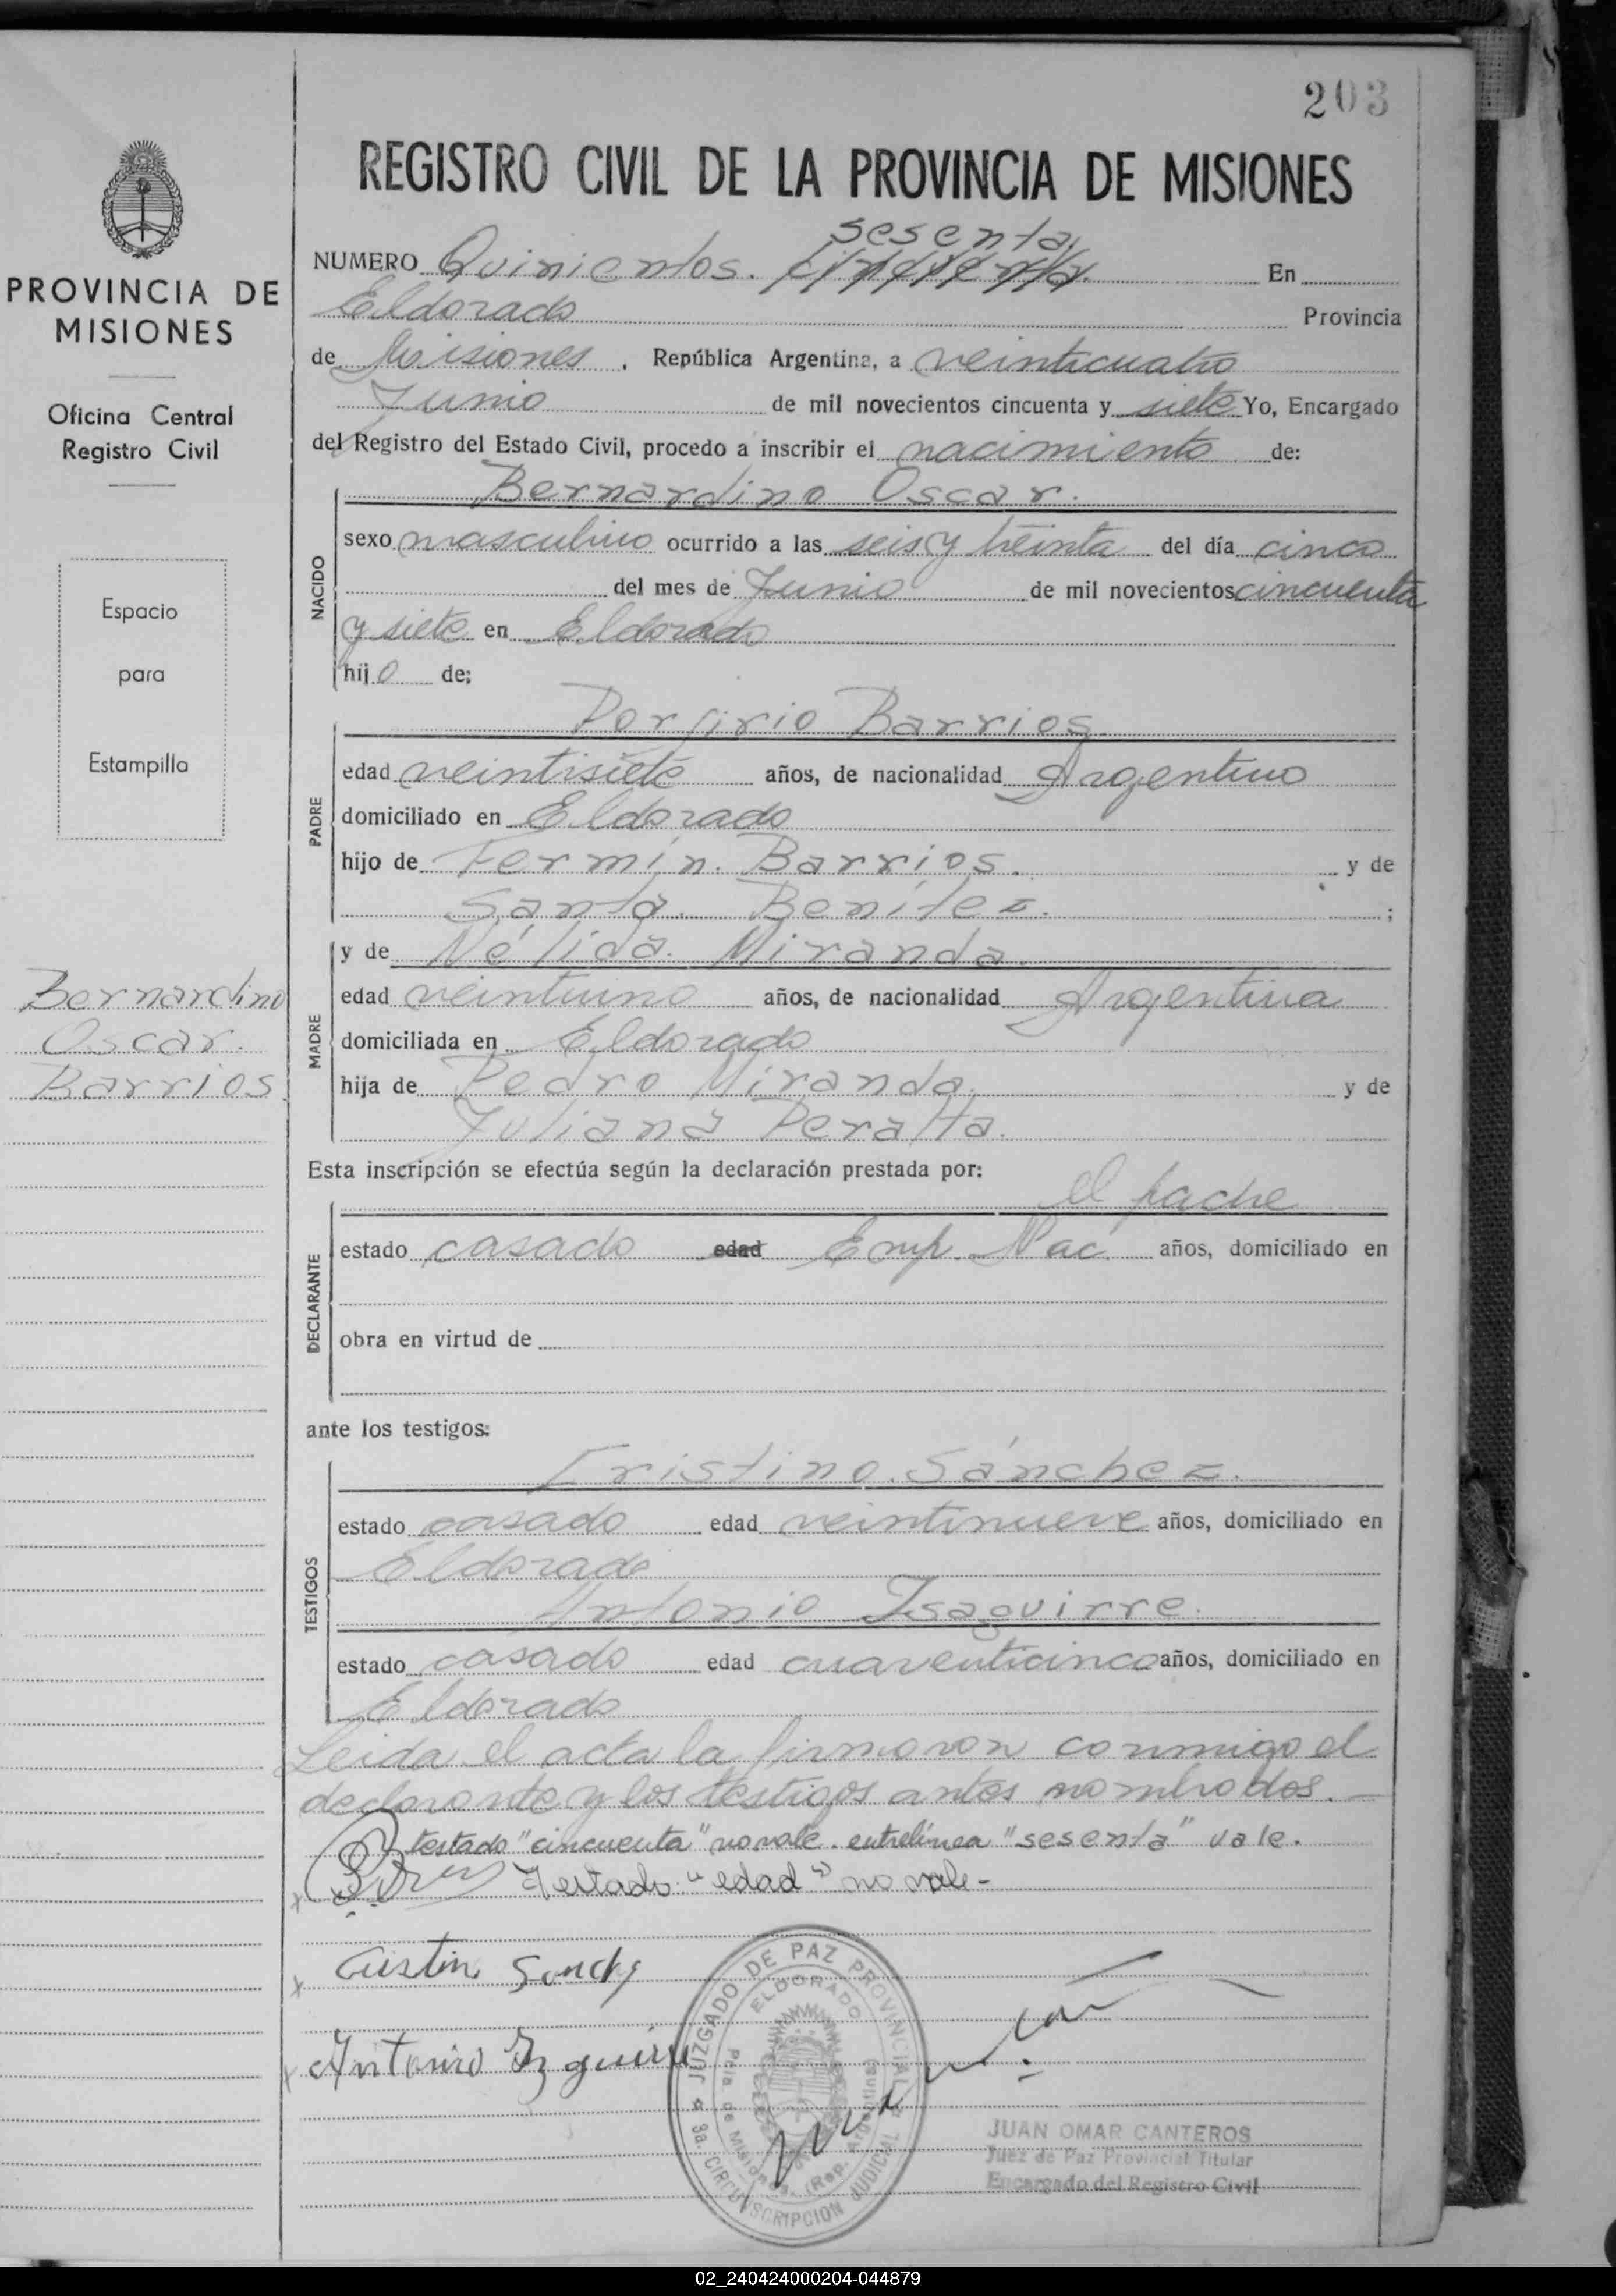 203
REGISTRO CIVIL DE LA PROVINCIA DE MISIONES
PROVINCIA DE
MISIONES
Oficina Central
Registro Civil
Espacio
para
Estampilla
Bernardino
Oscar.
Barrios
sesenta
NUMERO Quinientos. cincuenta. En
Eldorado Provincia
de Misiones, República Argentina, a veinticuatro
Junio de mil novecientos cincuenta y siete Yo, Encargado
del Registro del Estado Civil, procedo a inscribir el nacimiento de:
NACIDO
Bernardino Oscar.
sexo masculino ocurrido a las seis y treinta del día cinco
del mes de Junio de mil novecientos cincuenta
y siete en Eldorado
hijo de;
PADRE
Porfirio Barrios
edad veintisiete años, de nacionalidad Argentino
domiciliado en Eldorado
hijo de Fermín. Barrios. y de
Santa. Benítez. ;
MADRE
y de Nélida. Miranda.
edad veintiuno años, de nacionalidad Argentina
domiciliada en Eldorado
hija de Pedro Miranda. y de
Juliana Peralta.
Esta inscripción se efectúa según la declaración prestada por:
DECLARANTE
el padre
estado casado edad Emp. Nac. años, domiciliado en
obra en virtud de
ante los testigos:
TESTIGOS
Cristino. Sánchez.
estado casado edad veintinueve años, domiciliado en
Eldorado
Antonio Isaguirre.
estado casado edad cuarenticinco años, domiciliado en
Eldorado
Leida el acta la firmaron conmigo el
declarante y los testigos antes nombrados.—
testado "cincuenta" no vale. entrelínea "sesenta" vale.
Testado "edad" no vale-
Antonio
JUZGADO DE PAZ PROVINCIAL
ELDORADO
Pcia. de Misiones. (Rep. Argentina)
3a. CIRCUNSCRIPCION JUDICIAL
JUAN OMAR CANTEROS
Juez de Paz Provincial Titular
Encargado del Registro Civil
02_240424000204-044879